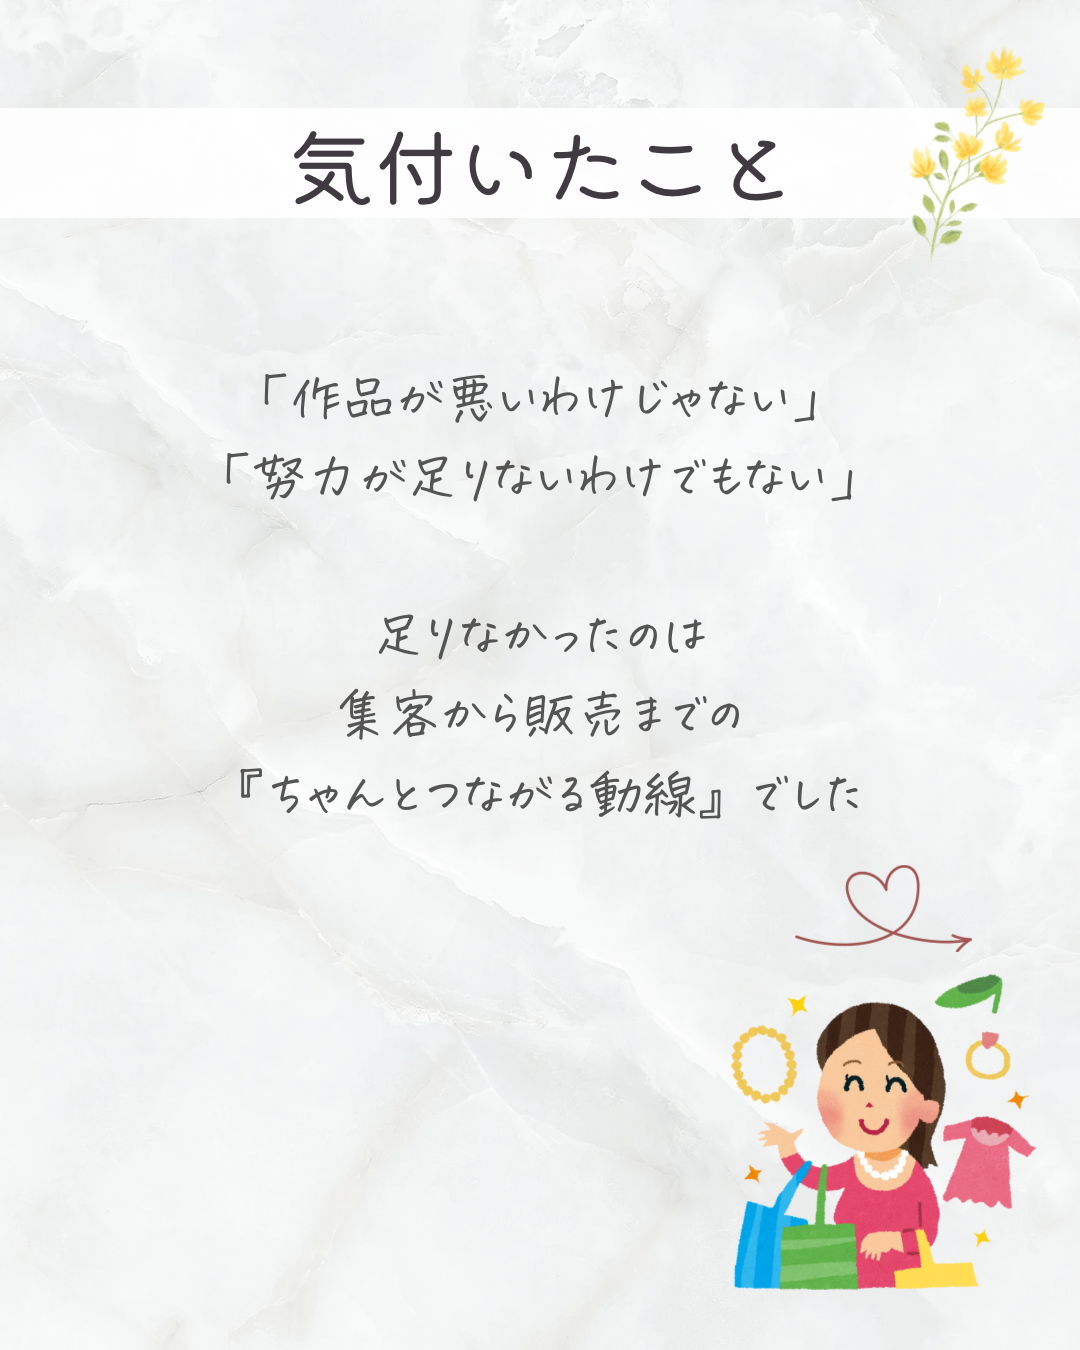 気付いたこと
「作品が悪いわけじゃない」
「努力が足りないわけでもない」
足りなかったのは
集客から販売までの
『ちゃんとつながる動線』でした